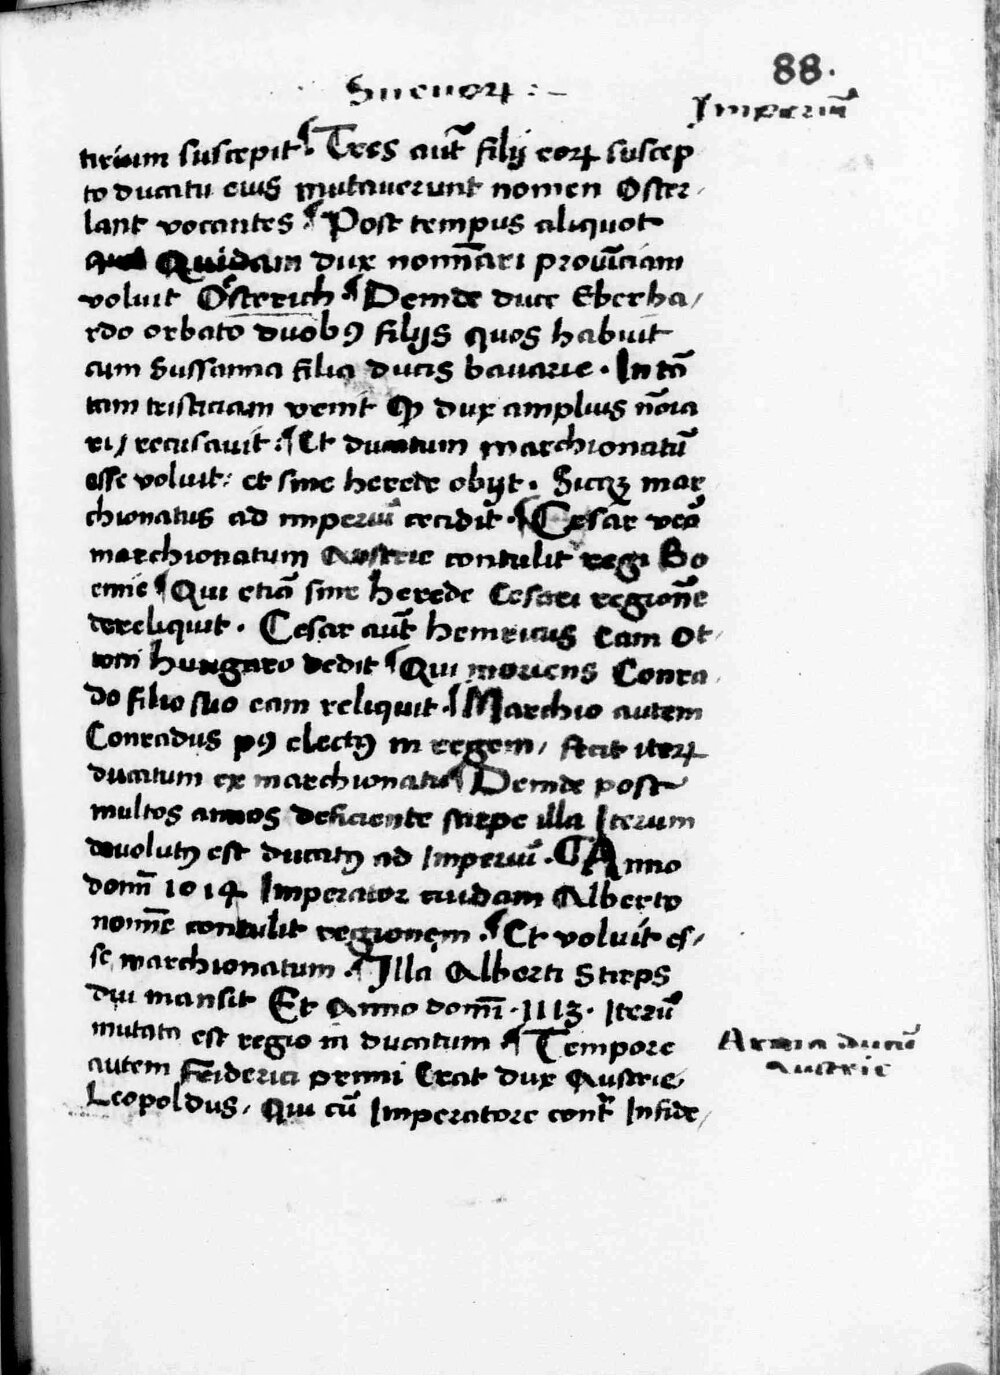 88.
Sueuorꝝ :~
Imperiū
tirium suscepit. Tres aut̄ filij eorꝝ suscep
to ducatu eius mutauerunt nomen Oster-
lant vocantes Post tempus aliquot
Quidam dux nominari prouīciam
voluit Osterich Deinde duce Eberha/
rdo orbato duobꝰ filijs quos habuit
cum Sussanna filia ducis bauarie. In tā
tam tristiciam venit ꝙ dux amplius nōīa
ri, recusauit. Et ducatum marchionatū
esse voluit: et sine herede obijt. Sicqꝫ mar
chionatus ad imperiū cecidit. Cesar vero
marchionatum Austrie contulit regi Bo
emie Qui etiā sine herede Cesari regionē
dereliquit. Cesar aut̄ heinricus eam Ot-
toni hungaro dedit Qui moriens Conra-
do filio suo eam reliquit. Marchio autem
Conradus pꝰ electꝰ in regem, fecit iterꝝ
ducatum ex marchionatu Deinde post
multos annos deficiente stirpe illa Iterum
deuolutꝰ est ducatꝰ ad Imperiū. Anno
domī 1014 Imperator cuidam Alberto
nomīe contulit regionem. Et voluit es/
se marchionatum. Illa Alberti Stirps
diu mansit Et Anno domī. 1113. Iterū
mutata est regio in ducatum Tempore
autem Friderici primi Erat dux Austrie
Leopoldus, Qui cū Imperatore contr̄ Infide/
Arma ducū
Austrie